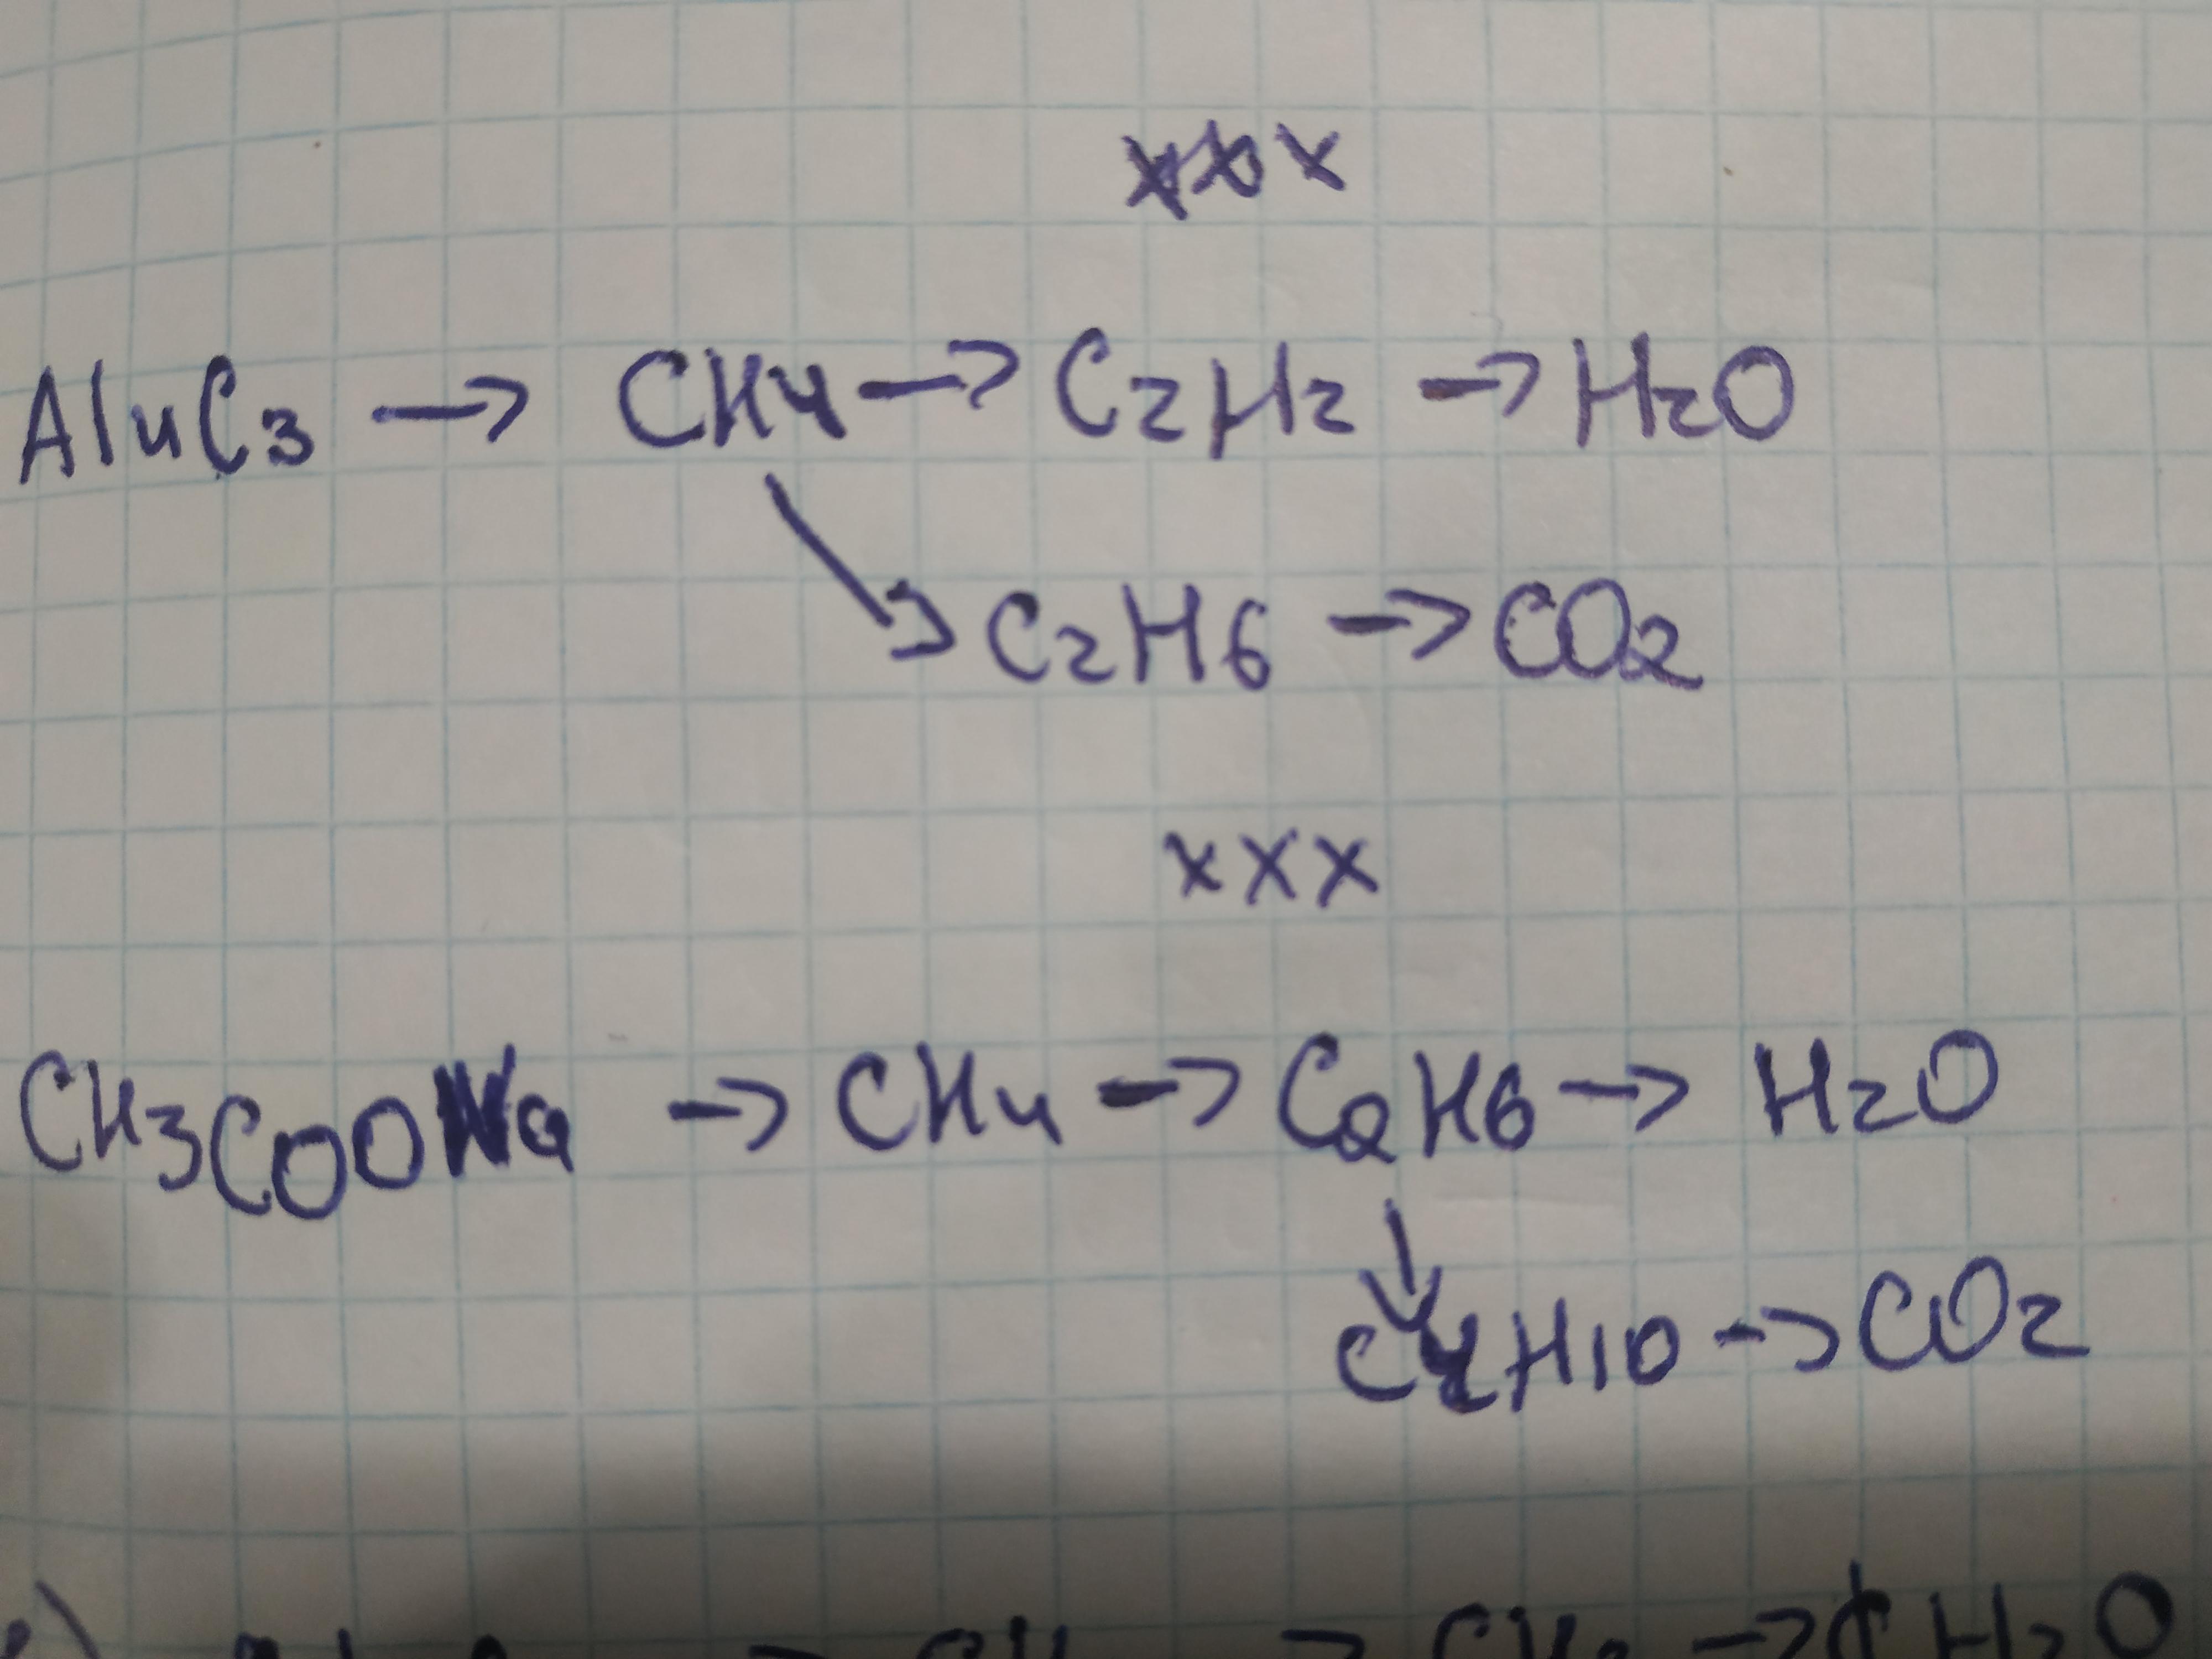 xxx
Al4C3 → CH4 → C2H2 → H2O
↘ C2H6 → CO2
xxx
CH3COONa → CH4 → C2H6 → H2O
↓
C4H10 → CO2